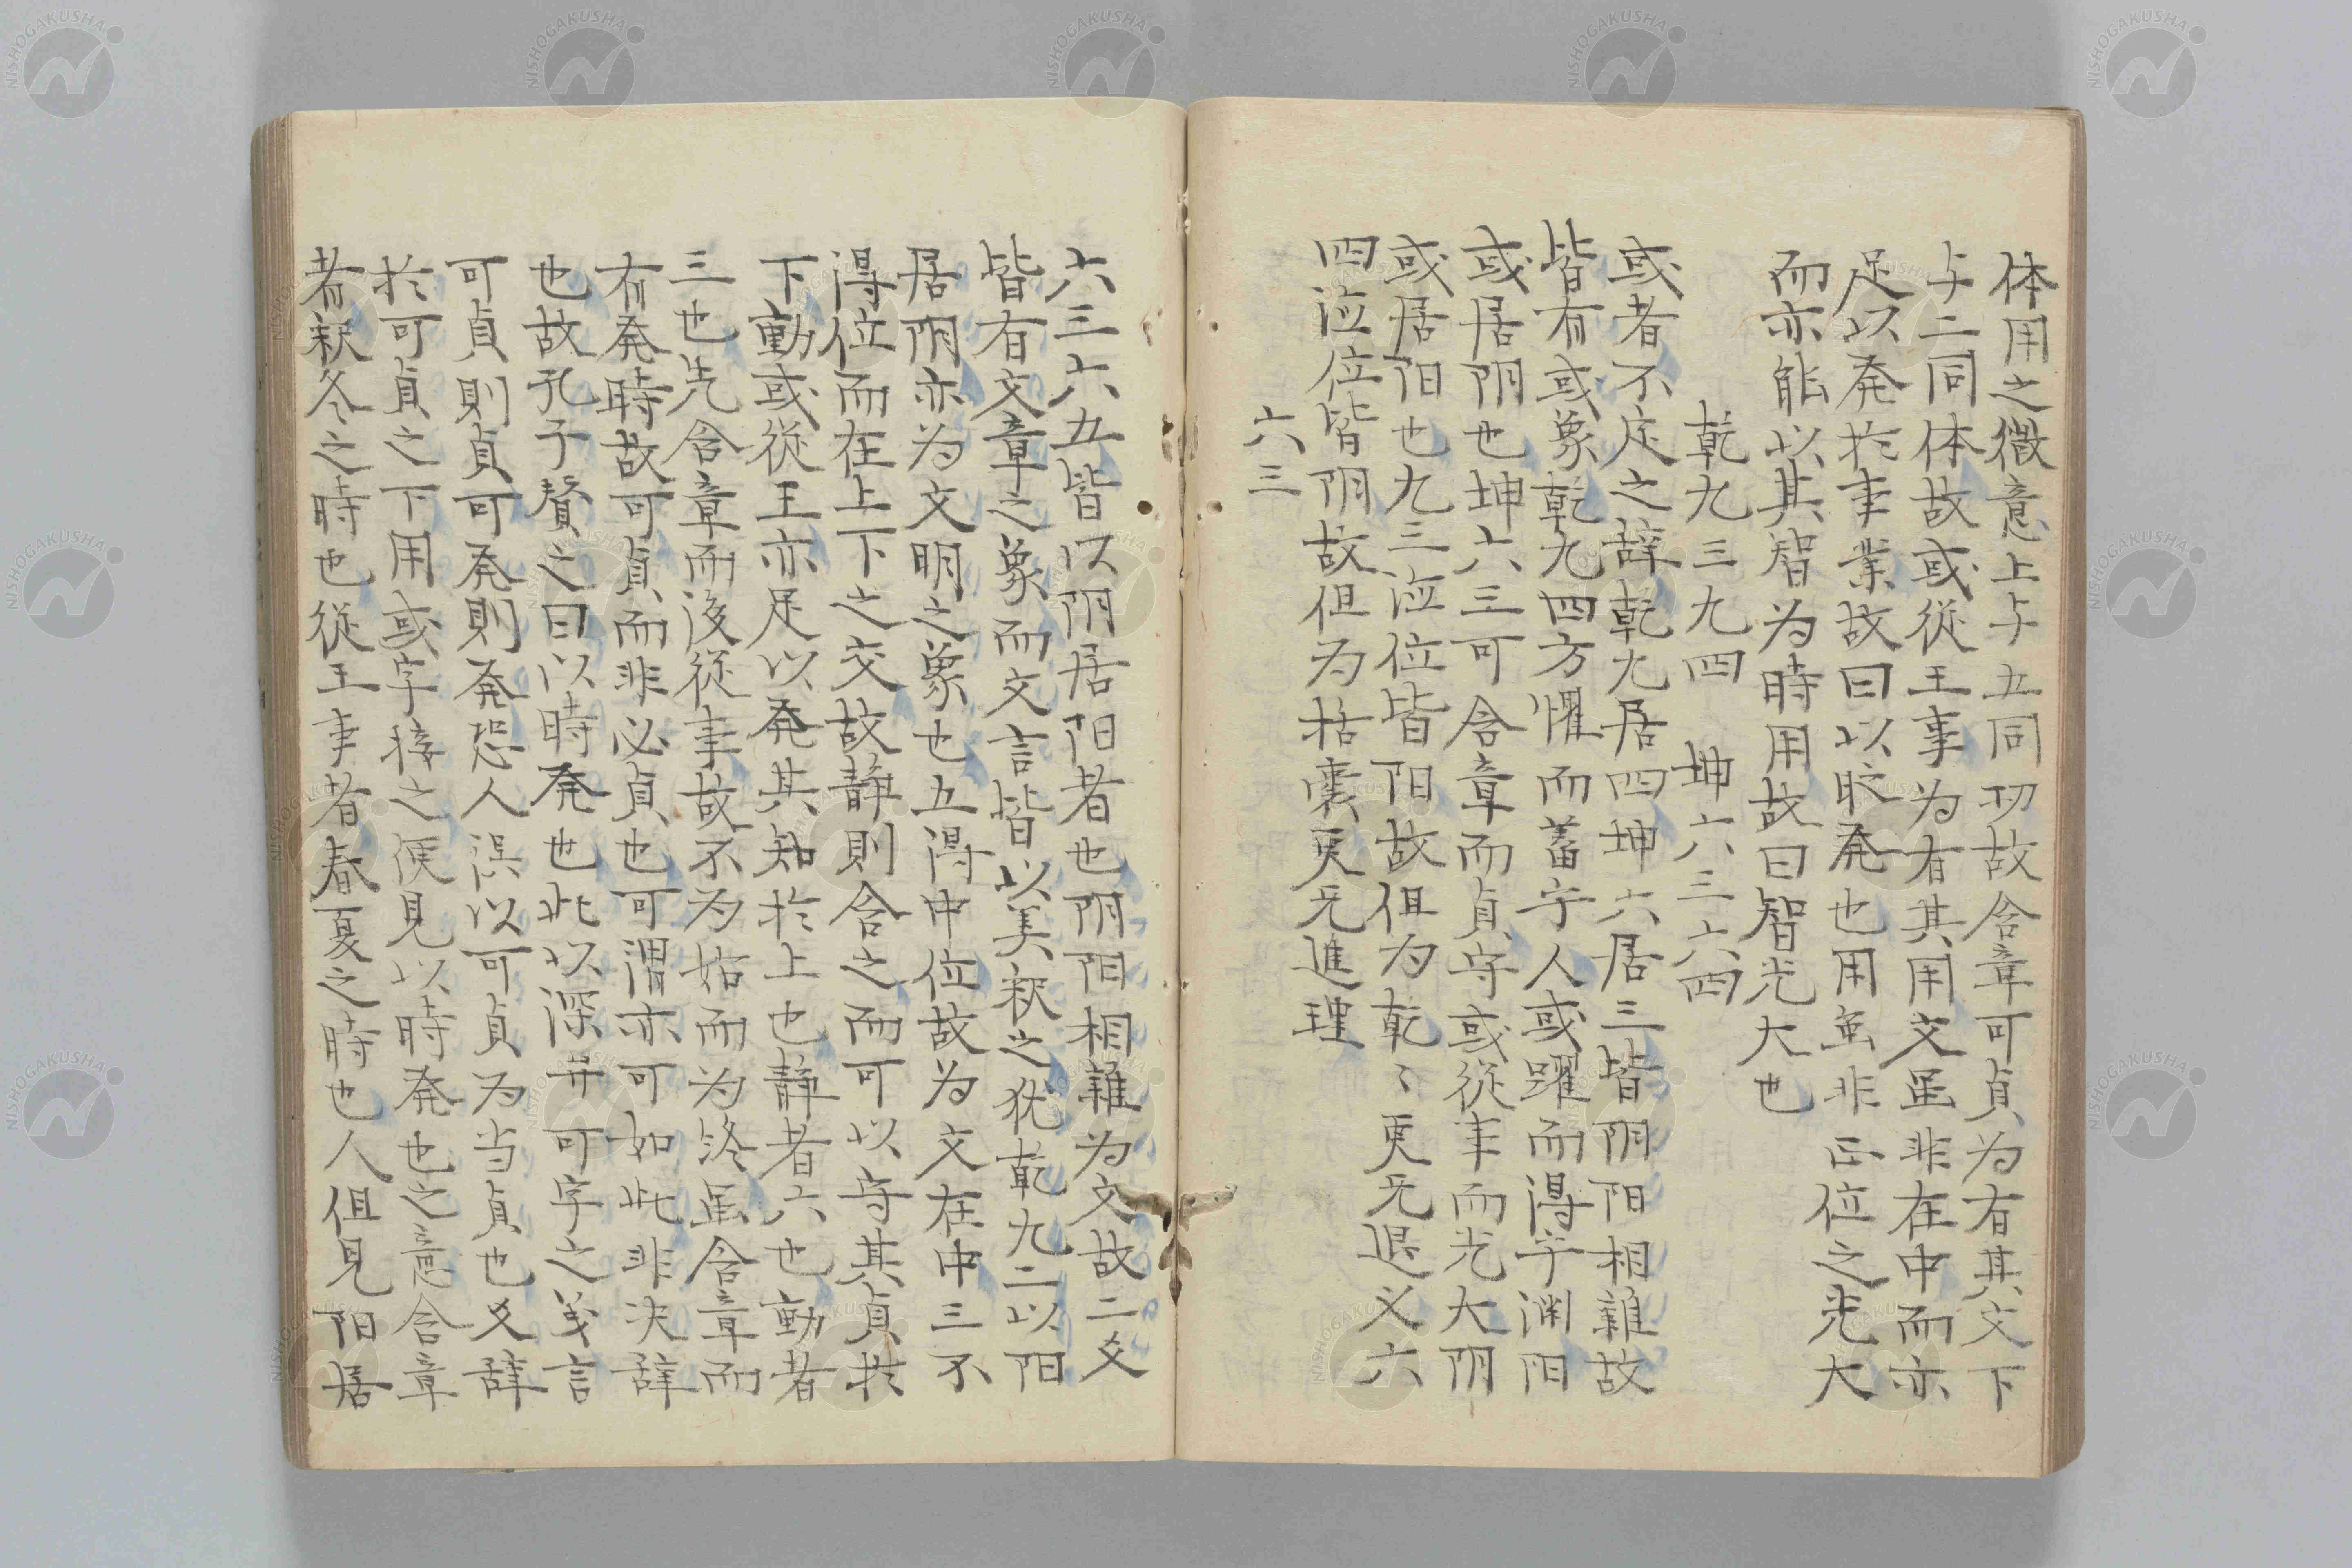 体用之微意上与五同功故含章可貞为有其文下
与二同体故或従王事为有其用文虽非在中而亦
足以発於事業故曰以時発也用虽非正位之光大
而亦能以其智为時用故曰智光大也
乾九三九四 坤六三六四
或者不定之辞乾九居四坤六居三皆阴阳相雑故
皆有或象乾九四方懼而蓄守人或躍而得乎渊阳
或居阴也坤六三可含章而貞守或従事而光大阴
或居阳也九三涖位皆阳故但为乾〻更无退义六
四涖位皆阴故但为括囊更无進理
六三
六三六五皆以阴居阳者也阴阳相雑为文故二爻
皆有文章之象而文言皆以美釈之犹乾九二以阳
居阴亦为文明之象也五得中位故为文在中三不
得位而在上下之交故静則含之而可以守其貞於
下動或従王亦足以発其知於上也静者六也動者
三也先含章而後従事故不为始而为終虽含章而
有発時故可貞而非必貞也可謂亦可如此非决辞
也故孔子賛之曰以時発也此以深弁可字之義言
可貞則貞可発則発恐人誤以可貞为当貞也爻辞
於可貞之下用或字接之便見以時発也之意含章
者釈冬之時也従王事者春夏之時也人但見阳居
NISHOGAKUSHA